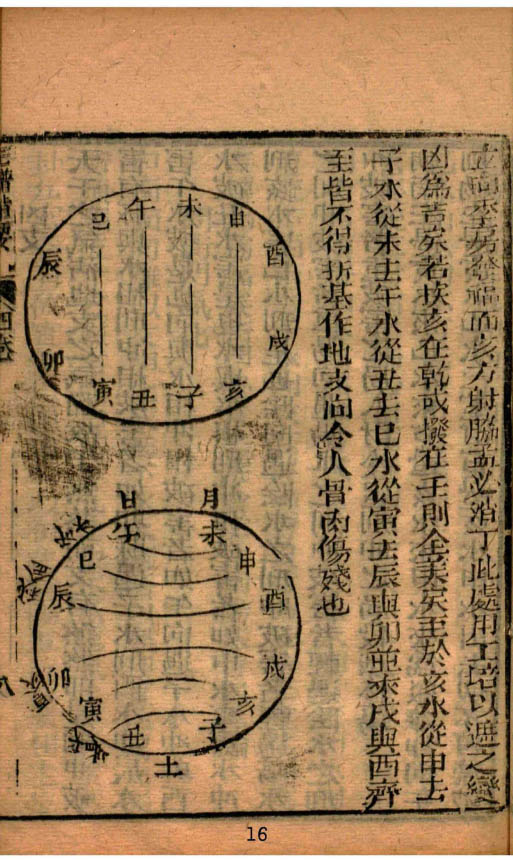 立向季房發福而亥方射脇孟必消丁此處用工培以避之變
凶爲吉矣若扶亥在乾或撥在壬則全美矣至於亥水從申去
子水從未去午水從丑去巳水從寅去辰與卯並來戌與酉齊
至皆不得折基作地支向令人骨肉傷殘也
巳
午
未
申
酉
戌
亥
子
丑
寅
卯
辰
日
月
午
未
申
酉
戌
亥
子
丑
寅
卯
辰
巳
土
16